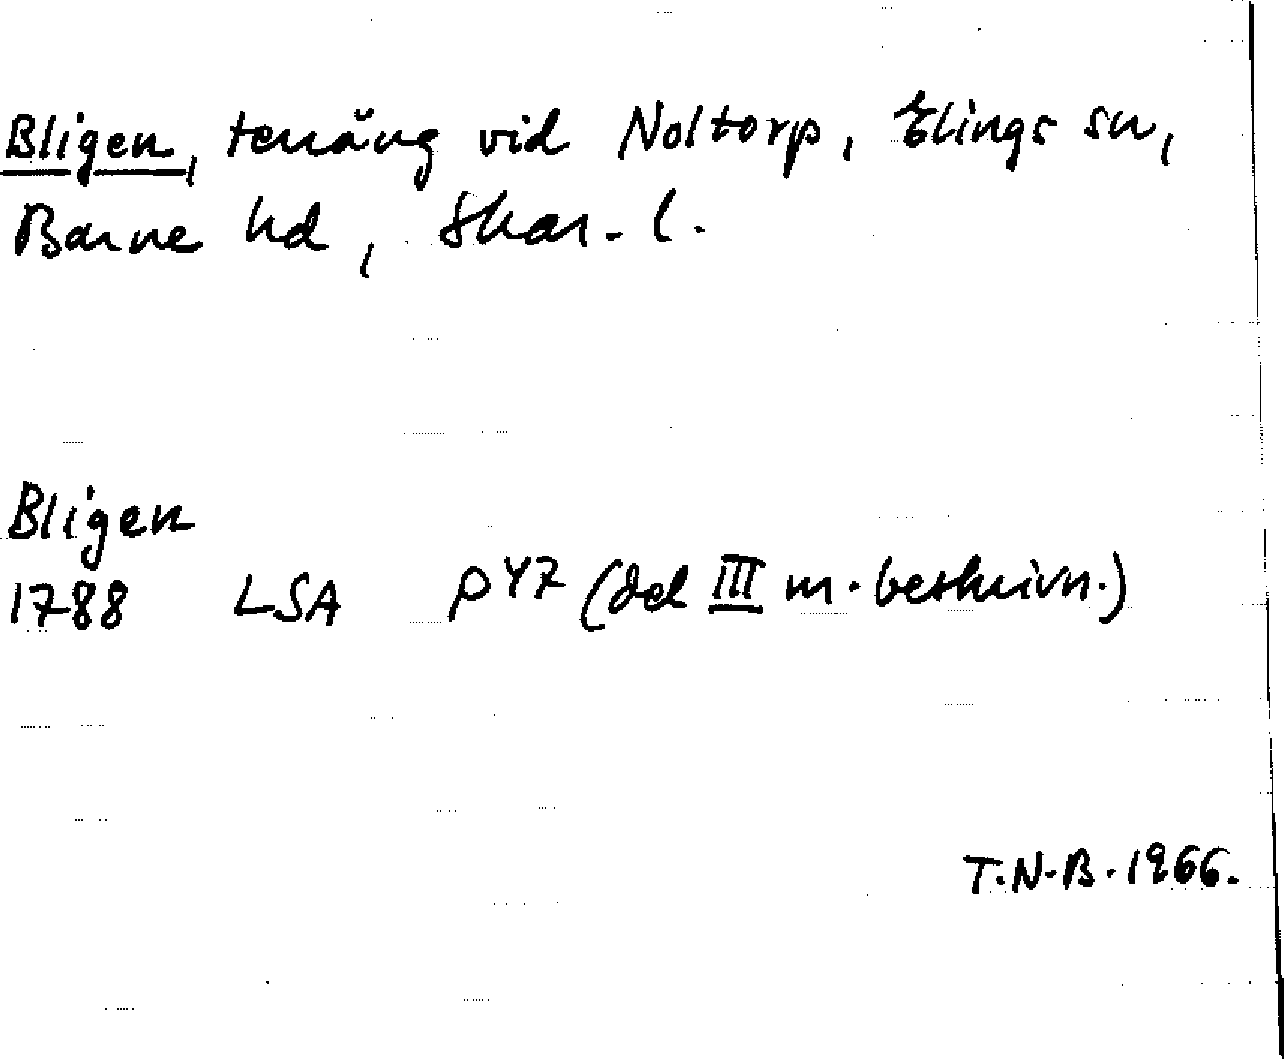 Bligen, terräng vid Noltorp, Elings sn,
Barne hd, Skar. l.
Bligen
1788 LSA P47 (del III m. beskrivn.)
T.N.B. 1966.